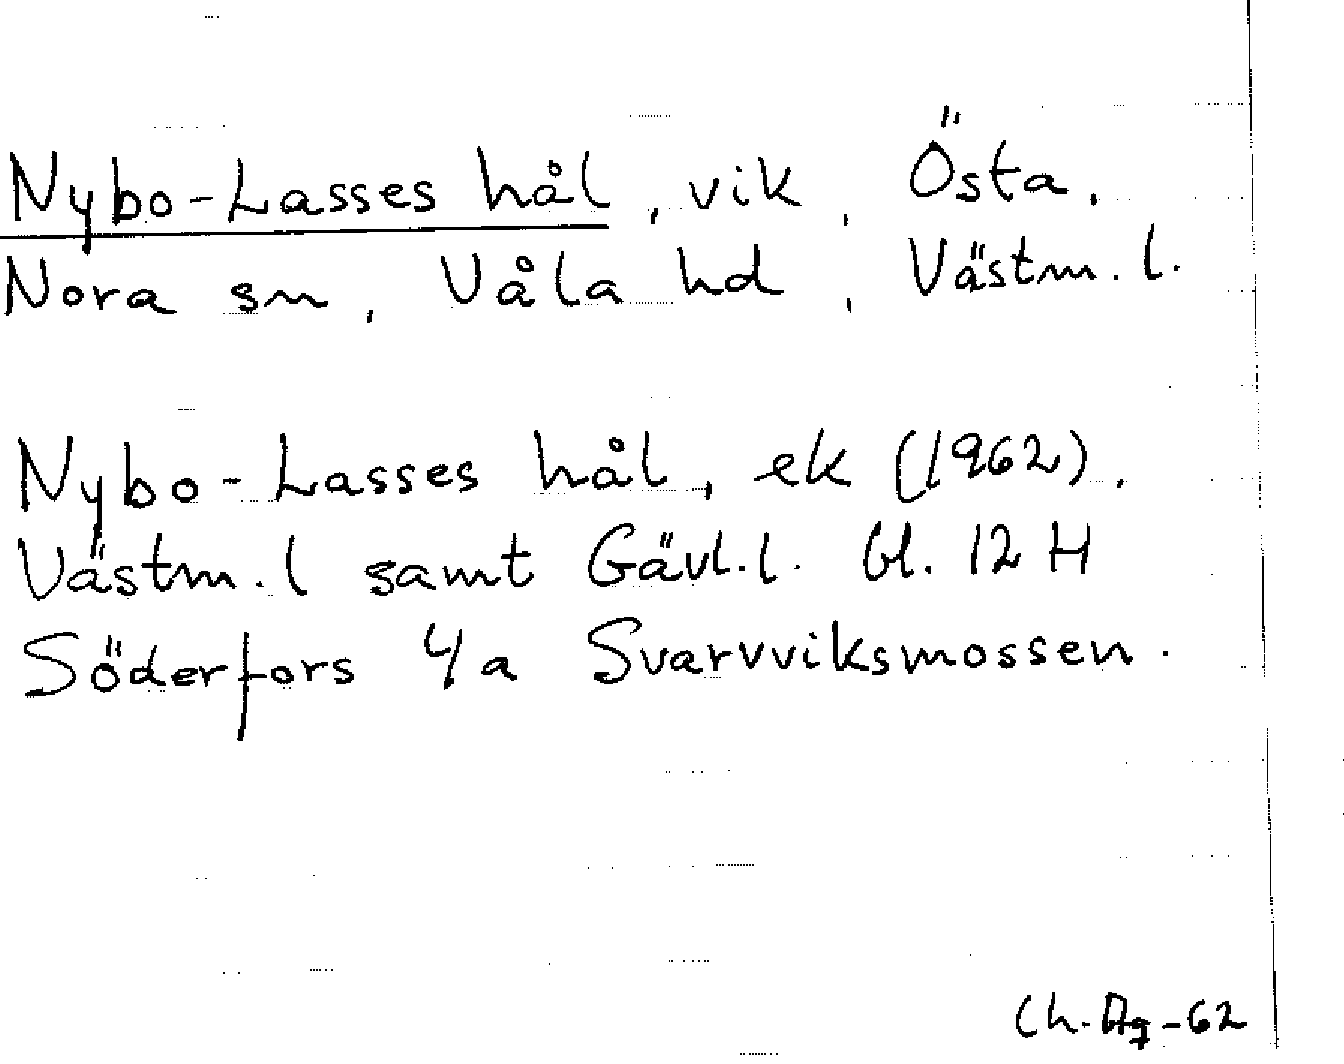 Nybo-Lasses hål, vik, Östa,
Nora sn, Våla hd, Västm. l.
Nybo-Lasses hål, ek (1962),
Västm. l samt Gävl. l. bl. 12 H
Söderfors 4/a Svarvviksmossen.
Ch. Ag-62